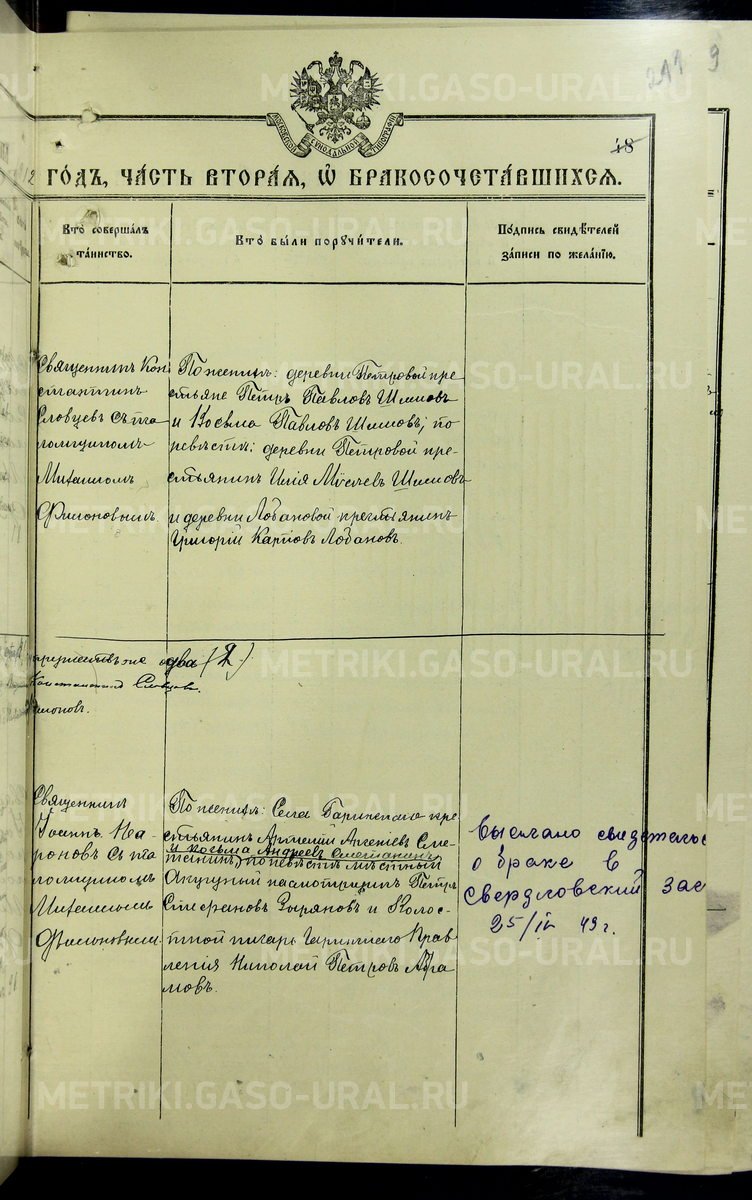 211 9
МОСКОВСКОЙ СѴНОДАЛЬНОЙ ТИПОГРАФІИ
48
2 ГОДЪ, ЧАСТЬ ВТОРАЯ, Ѡ БРАКОСОЧЕТАВШИХСЯ.
Кто совершалъ таинство.
Кто были поручители.
Подпись свидѣтелей записи по желанію.
Священникъ Кон
стантинъ
Словцевъ съ пса
ломщикомъ
Михаиломъ
Филоновымъ.
По женихѣ: деревни Петровой кре
стьяне Петръ Павловъ Шишовъ
и Косьма Павловъ Шишовъ; по
невѣстѣ: деревни Петровой кре-
стьянинъ Илія Шишовъ
и деревни Лобановой крестьянинъ
Григорій Карповъ Лобановъ.
два (2)
Константинъ Словцовъ.
Филоновъ.
Священникъ
Іоаннъ
роновъ съ пса
ломщикомъ
Михаиломъ
Филоновымъ.
По женихѣ: Села Гаринскаго кре
стьянинъ Артемій Арсеніевъ Сме-
и Косьма Андреевъ Сметанинъ
танинъ; по невѣстѣ: мѣстный
Акцизный надсмотрщикъ Петръ
Стефановъ Зыряновъ и Волос-
тной писарь Гаринскаго Прав
ленія Николай Петровъ Абра
мовъ.
выслано свидетельс
о браке в
Свердловский заг
25/IV 49 г.
METRIKI.GASO-URAL.RU